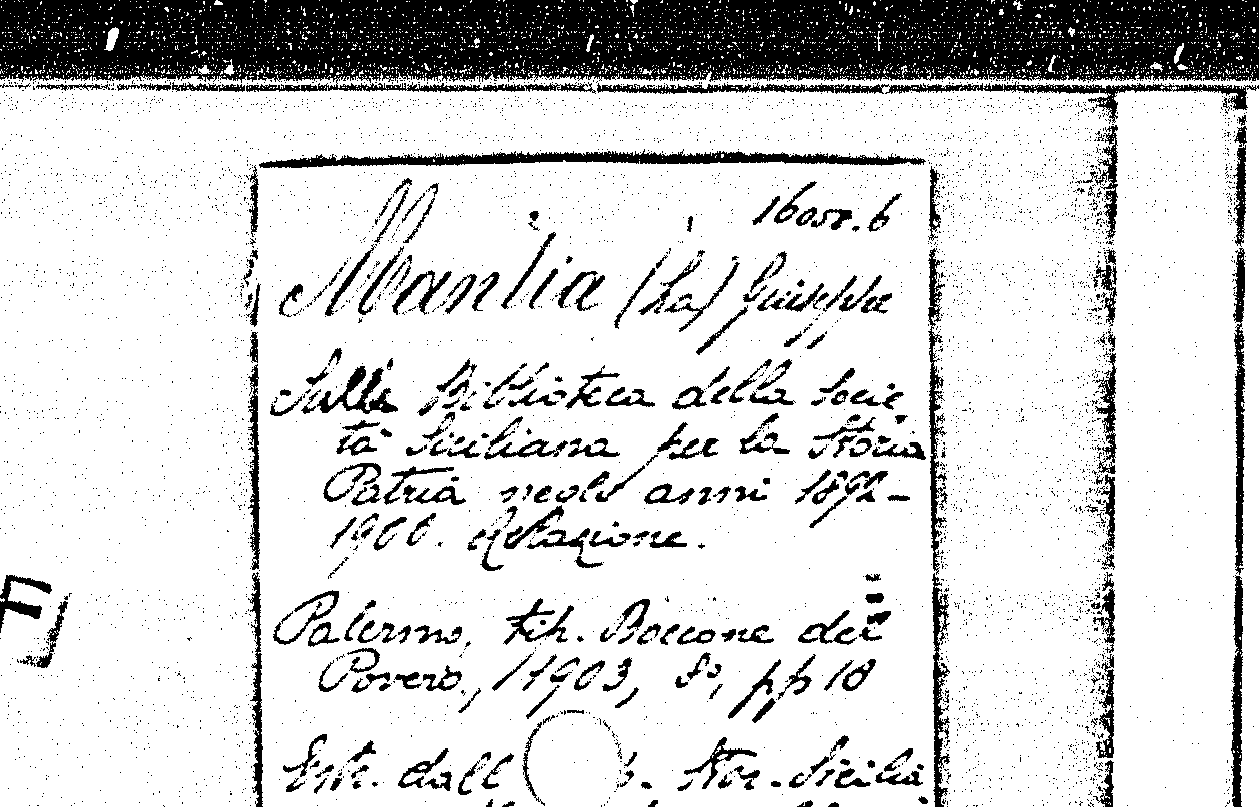 16 osr. 6
Mantia (La) Giuseppe
Sulla Biblioteca della Socie
tà Siciliana per la Storia
Patria negli anni 1892-
1900. Relazione.
Palermo, tip. Boccone del
Povero, 1903, 8°, pp 18
Estr. dall Stor. Sicilia
F